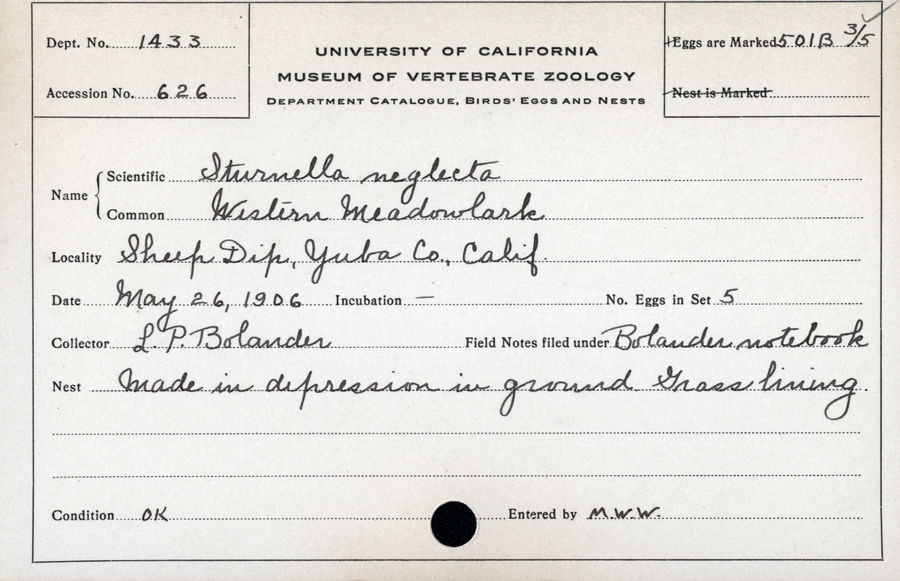 Dept. No. 1433
Accession No. 626
UNIVERSITY OF CALIFORNIA
MUSEUM OF VERTEBRATE ZOOLOGY
DEPARTMENT CATALOGUE, BIRDS' EGGS AND NESTS
Eggs are Marked 501B 3/5
Nest is Marked
Name
Scientific Sturnella neglecta
Common Western Meadowlark
Locality Sheep Dip, Yuba Co., Calif.
Date May 26, 1906 Incubation — No. Eggs in Set 5
Collector L. P. Bolander Field Notes filed under Bolander notebook
Nest Made in depression in ground. Grass lining.
Condition OK Entered by M.W.W.